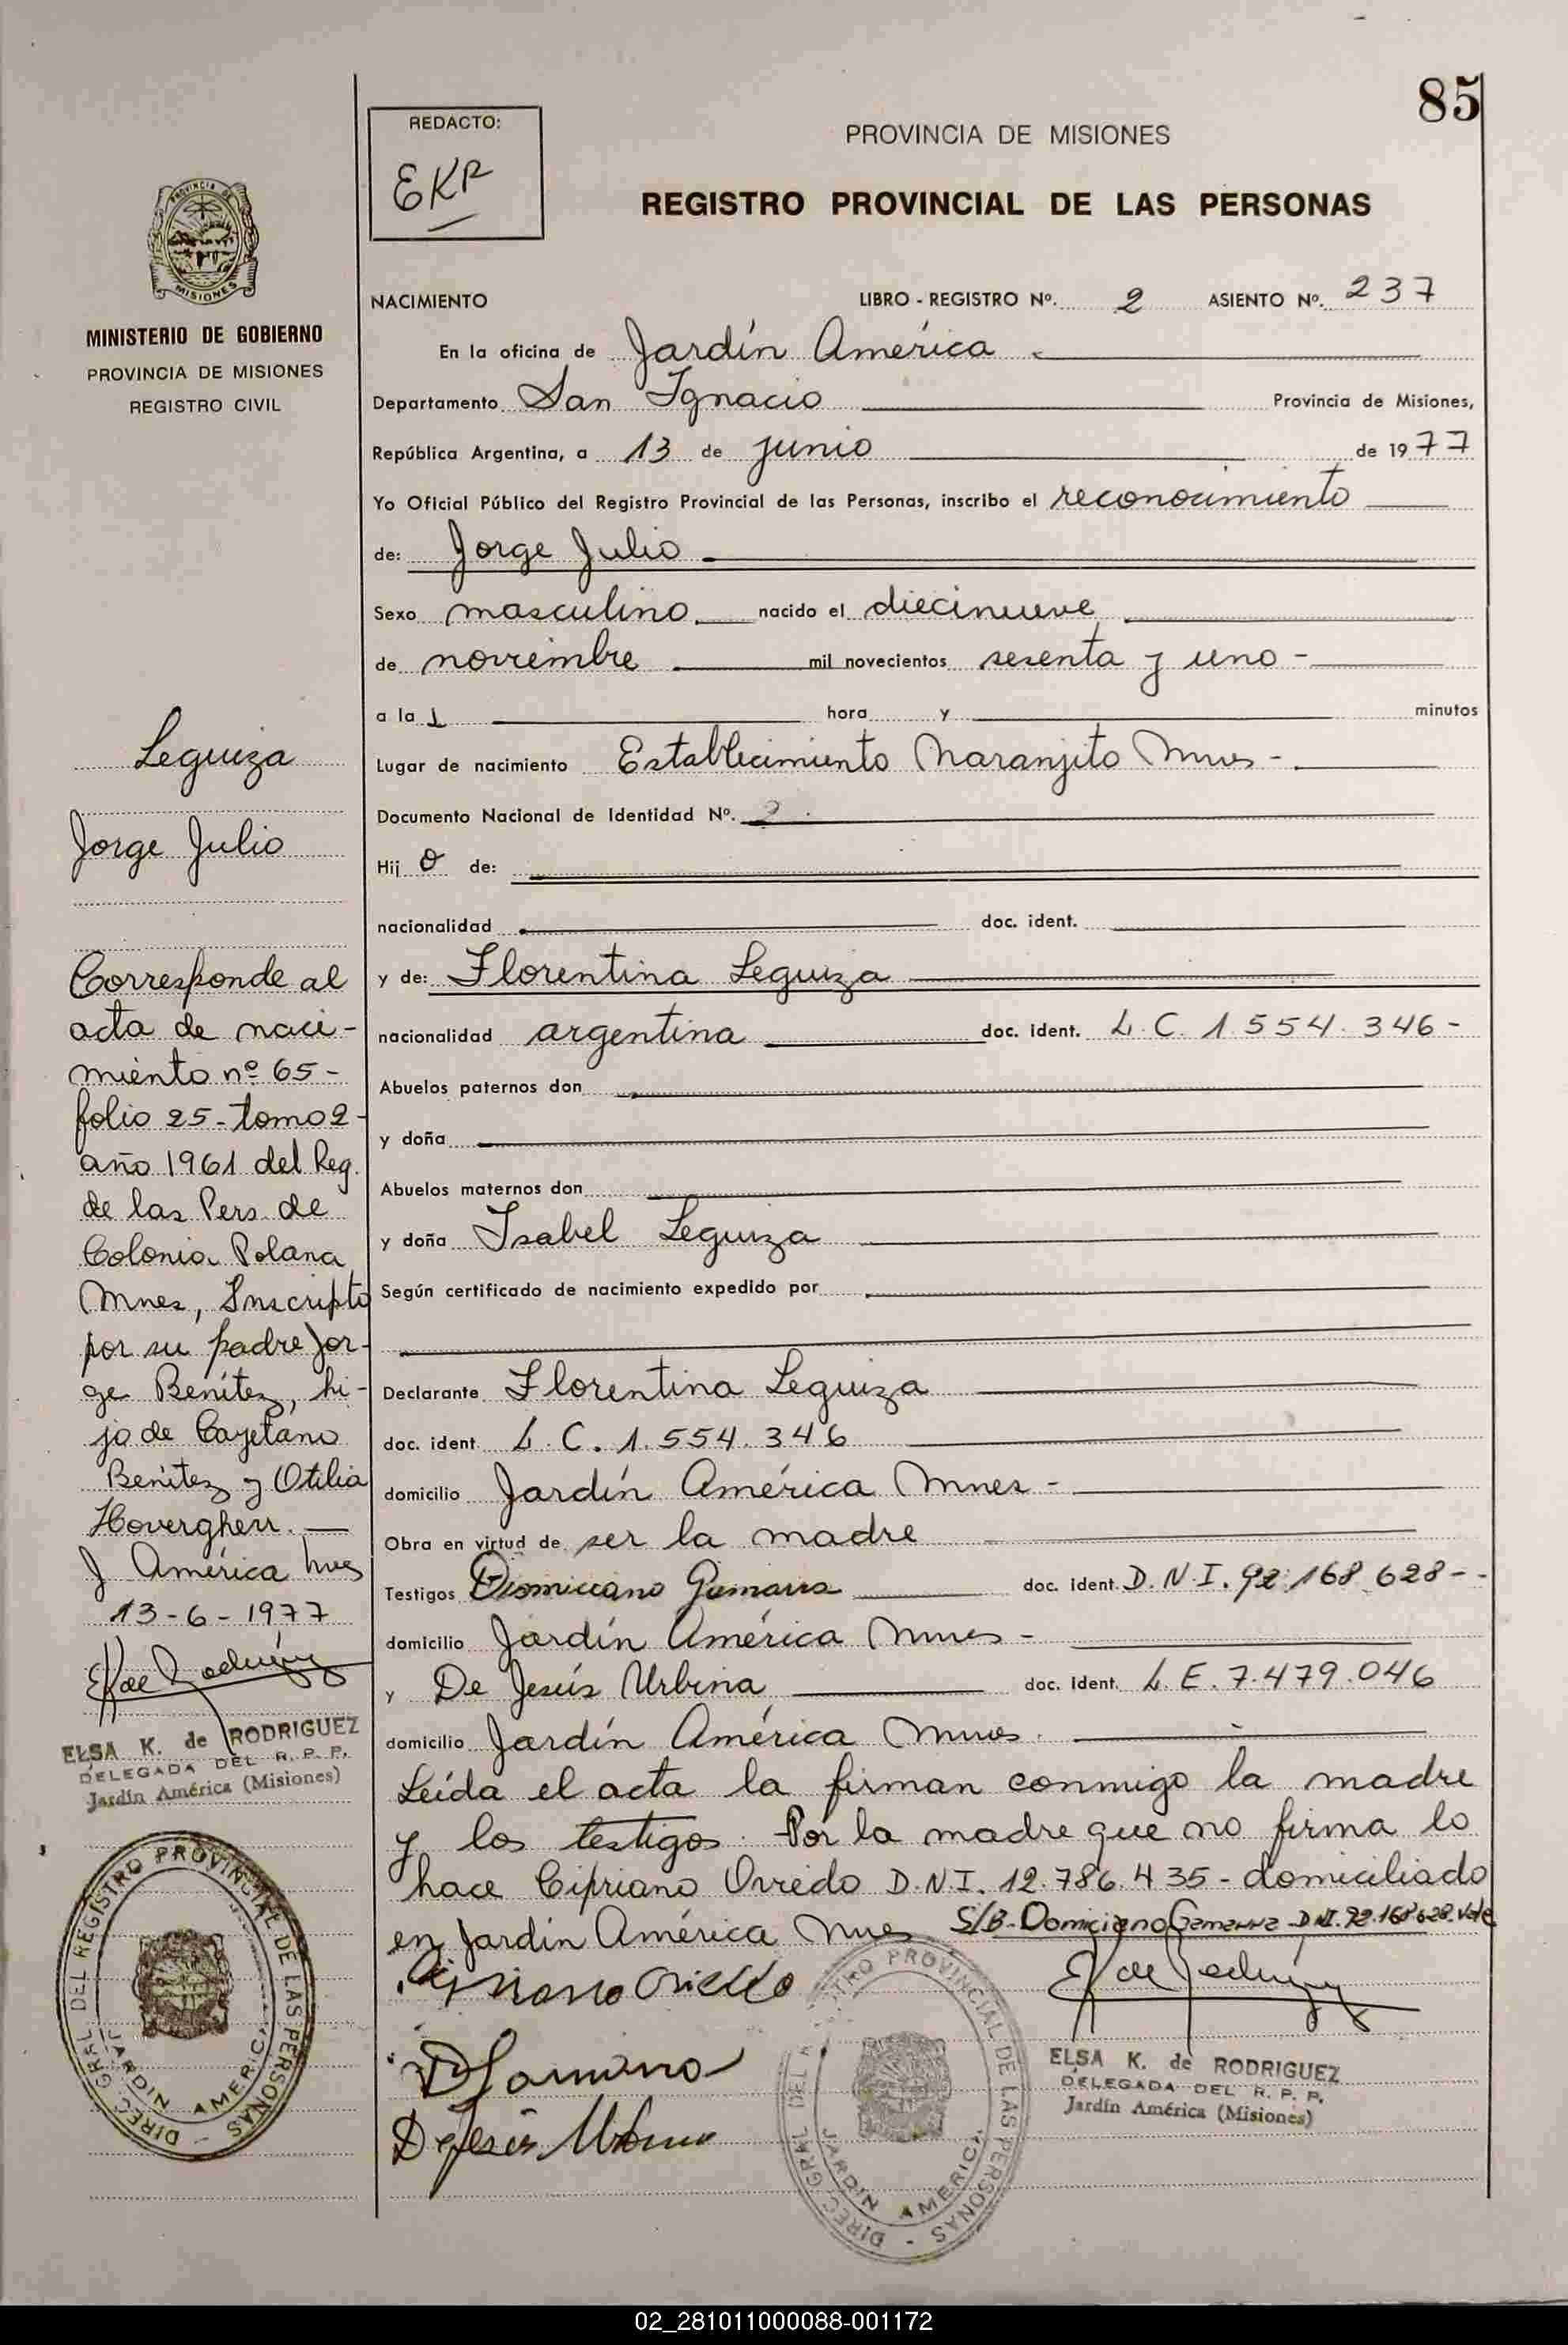 85
REDACTO:
EKR
PROVINCIA DE MISIONES
REGISTRO PROVINCIAL DE LAS PERSONAS
PROVINCIA DE
MISIONES
MINISTERIO DE GOBIERNO
PROVINCIA DE MISIONES
REGISTRO CIVIL
NACIMIENTO LIBRO - REGISTRO Nº. 2 ASIENTO Nº. 237
En la oficina de Jardín América
Departamento San Ignacio Provincia de Misiones,
República Argentina, a 13 de junio de 1977
Yo Oficial Público del Registro Provincial de las Personas, inscribo el reconocimiento
de: Jorge Julio
Sexo masculino nacido el diecinueve
de noviembre mil novecientos sesenta y uno -
a la hora y minutos
Lugar de nacimiento Establecimiento Naranjito Mnes -
Documento Nacional de Identidad Nº.
Hij o de:
nacionalidad doc. ident.
y de: Florentina Leguiza
nacionalidad argentina doc. ident. L. C. 1.554.346-
Abuelos paternos don
y doña
Abuelos maternos don
y doña Isabel Leguiza
Según certificado de nacimiento expedido por
Declarante Florentina Leguiza
doc. ident L. C. 1.554.346
domicilio Jardín América Mnes -
Obra en virtud de ser la madre
Testigos Gamarra doc. ident. D.N.I. 92.168.628--
domicilio Jardín América Mnes -
y De Jesús Urbina doc. ident. L.E. 7.479.046
domicilio Jardín América Mnes.
Leída el acta la firman conmigo la madre
y los testigos. Por la madre que no firma lo
hace Cipriano Oviedo D.N.I. 12.786.435- domiciliado
en Jardín América Mnes S/B- Domiciano Gamarra D.N.I. 92.168.628. Vale
Cipriano Oviedo
E K de Rodríguez
DGamarra
De Jesús Urbina
ELSA K. de RODRIGUEZ
DELEGADA DEL R. P. P.
Jardín América (Misiones)
DIREC. GRAL. DEL REGISTRO PROVINCIAL DE LAS PERSONAS -
JARDIN AMERICA
Leguiza
Jorge Julio
Corresponde al
acta de naci-
miento nº 65-
folio 25- tomo 2-
año 1961 del Reg.
de las Pers. de
Colonia Polana
Mnes, Inscripto
por su padre Jor-
ge Benítez, hi-
jo de Cayetano
Benítez y Otilia
Hoverghen.
J América Mnes
13-6-1977
E K de Rodríguez
ELSA K. de RODRIGUEZ
DELEGADA DEL R. P. P.
Jardín América (Misiones)
DIREC. GRAL. DEL REGISTRO PROVINCIAL DE LAS PERSONAS -
JARDIN AMERICA
02_281011000088-001172